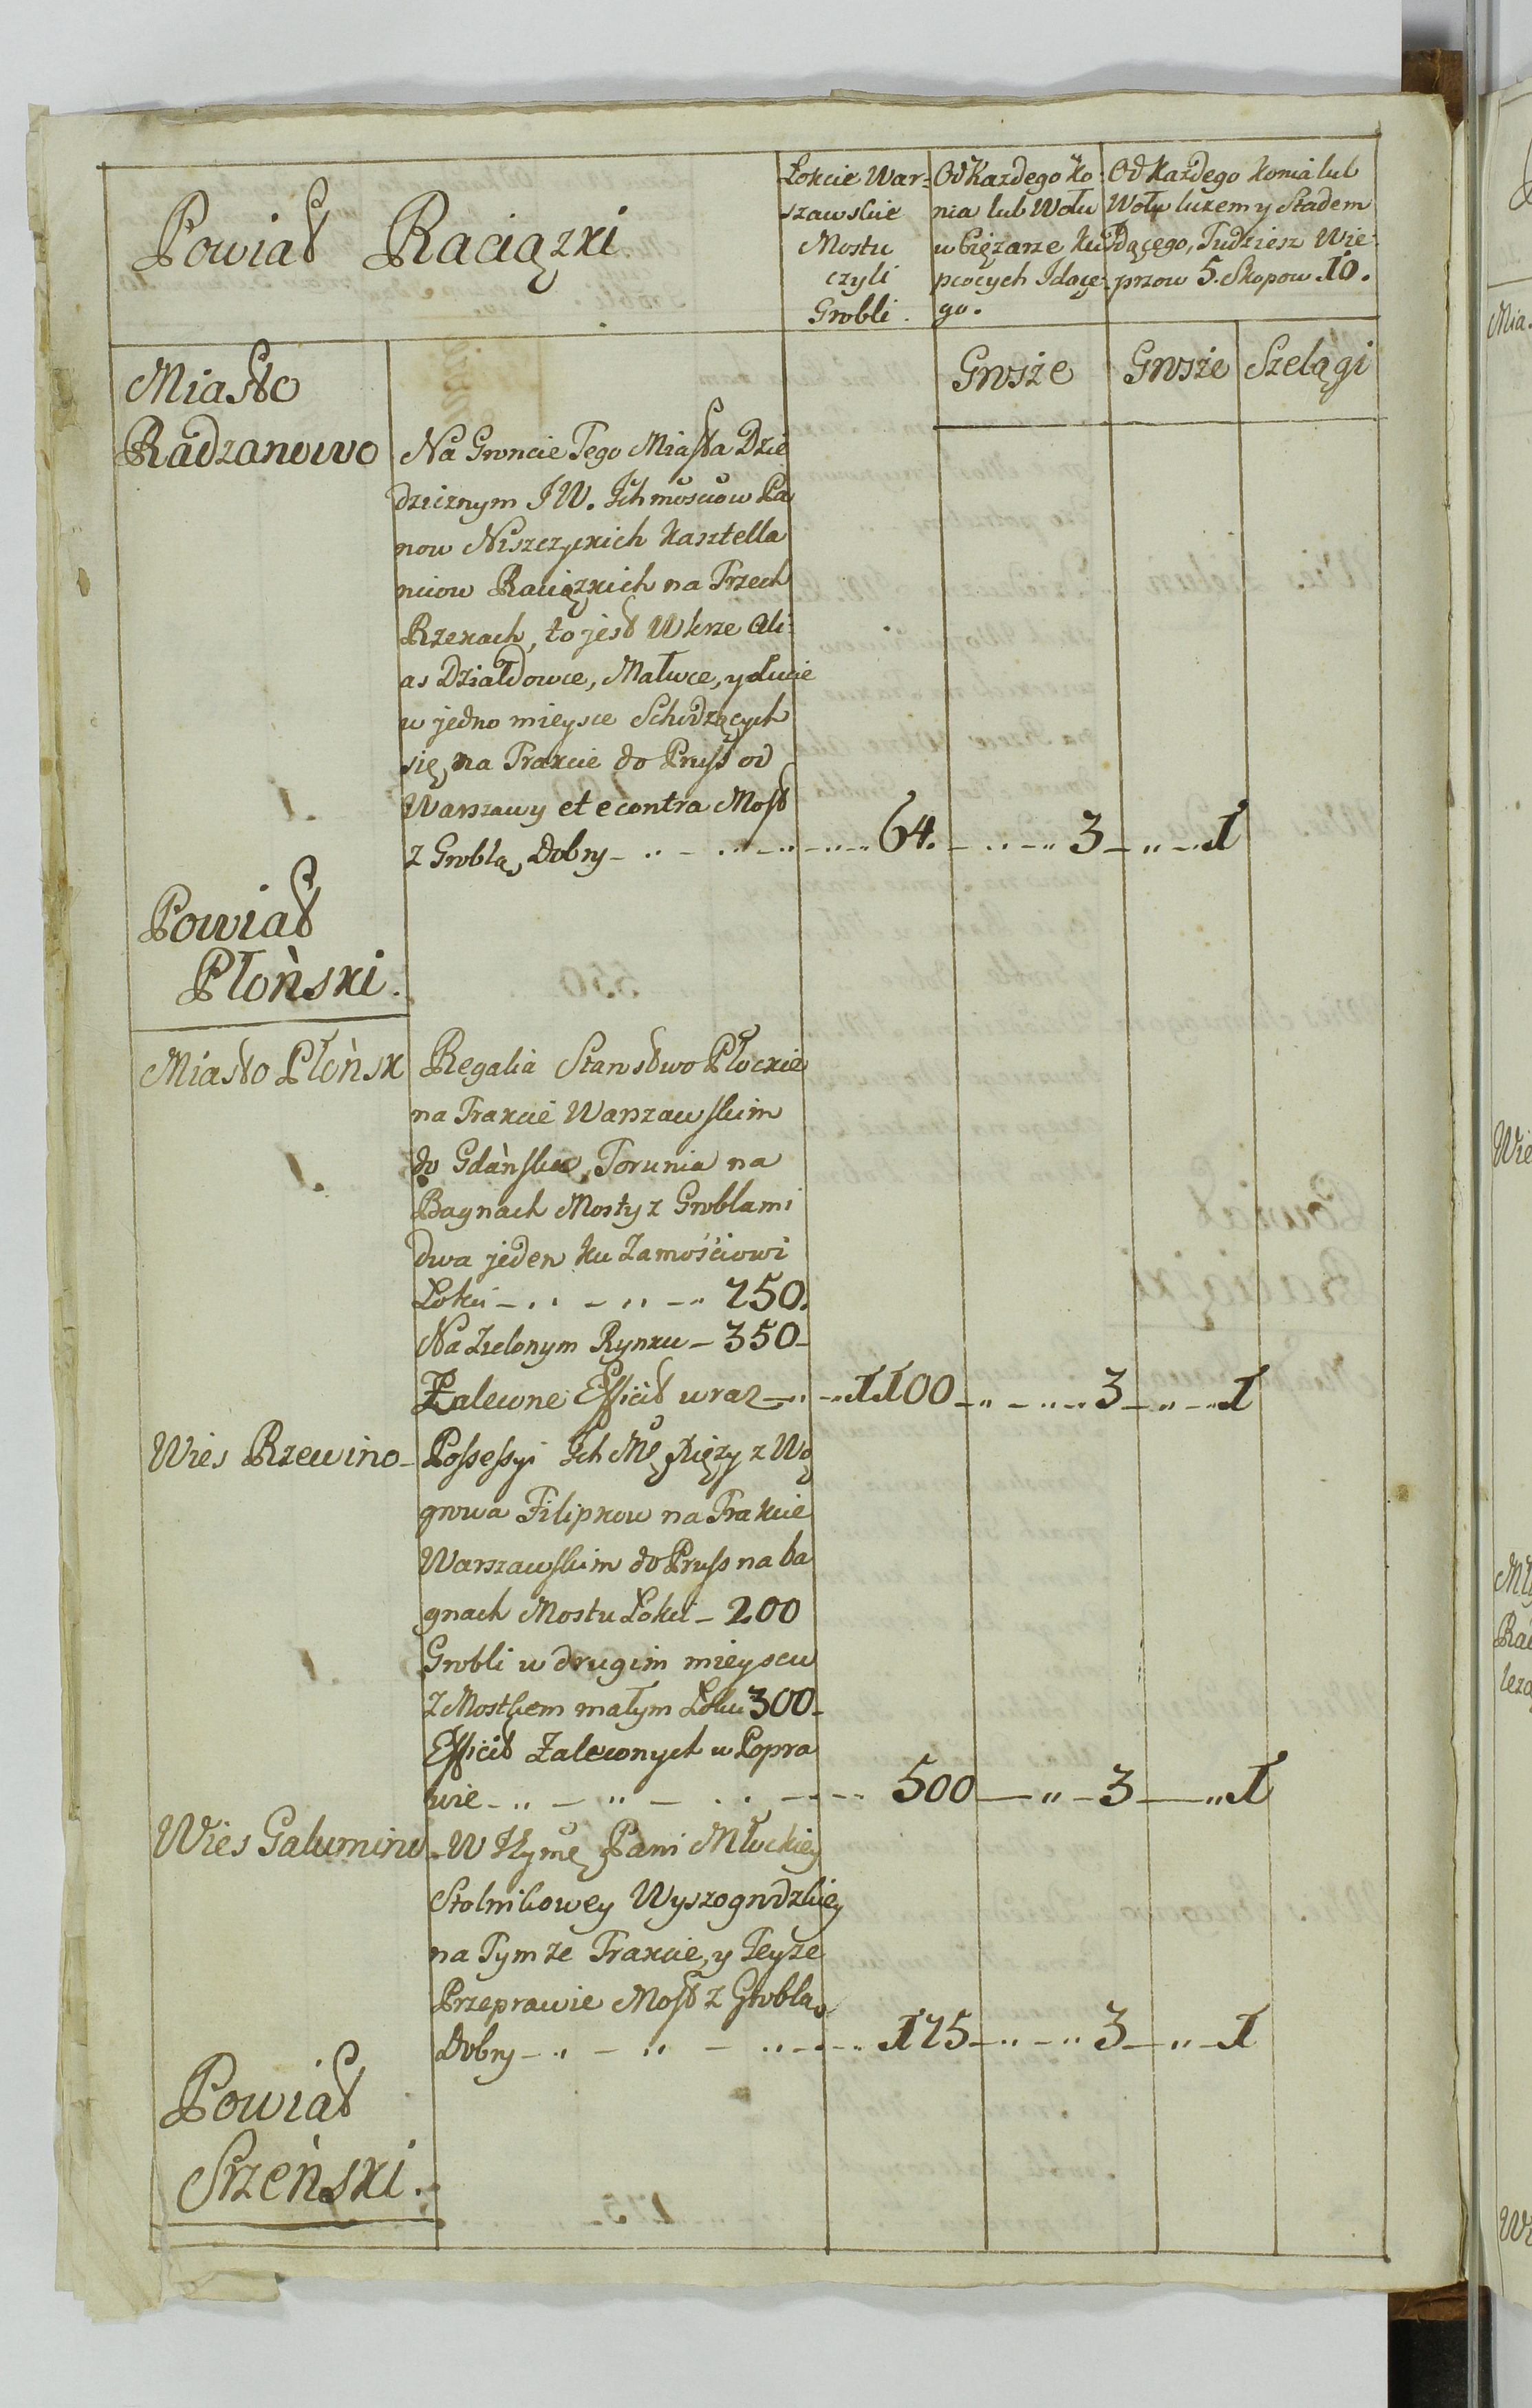 Powiat Raciązki
Łokcie War-
szawskie
Mostu
czyli
Grobli.
Od Kazdego Ko-
nia lub Wołu
w Ciężarze Ku-
pcocych Idące-
go.
Od Kazdego Konia lub
Wołu luzem y Stadem
Idącego, Tudziesz Wie-
przow 5. Skopow 10.
Grosze Grosze Szelągi
Miasto
Radzanowo
Na Groncie Tego Miasta Dzie
dzicznym JW. Ichmosciow Pa
now Niszczyckich Kasztella
nicow Raciązkich na Trzech
Rzekach, to jest Wkrze Ali-
as Działdowce, Mławce, y
w jedno mieysce Schodzących
się, na Trakcie do Pruss od
Warszawy et econtra Most
z Groblą Dobry 64. 3 1
Powiat
Płoński.
Miasto Płońsk
Regalia Starostwo Płockie
na Trakcie Warszawskim
do Gdańska, Torunia na
Bagnach Mosty z Groblami
dwa jeden ku Zamościowi
Łokci 750.
Na Zielonym Rynku 350
Zalewne Efficit wraz 1100 3 1
Wies Rzewino
Possessyi Ich Mę Xięzy z Wę
growa Filipkow na Trakcie
Warszawskim do Pruss na ba
gnach Mostu Łokci 200
Grobli w drugim mieyscu
z Mostkiem małym Łokci 300
Efficit Zalewnych w Popra
wie 500 3 1
Wies Galumino
W Jeymę Pani Młockiey
Stolnikowey Wyszogrodzkiey
na Tymze Trakcie, y Teyze
Przeprawie Most z Groblą
Dobry 175 3 1
Powiat
Srzeński.